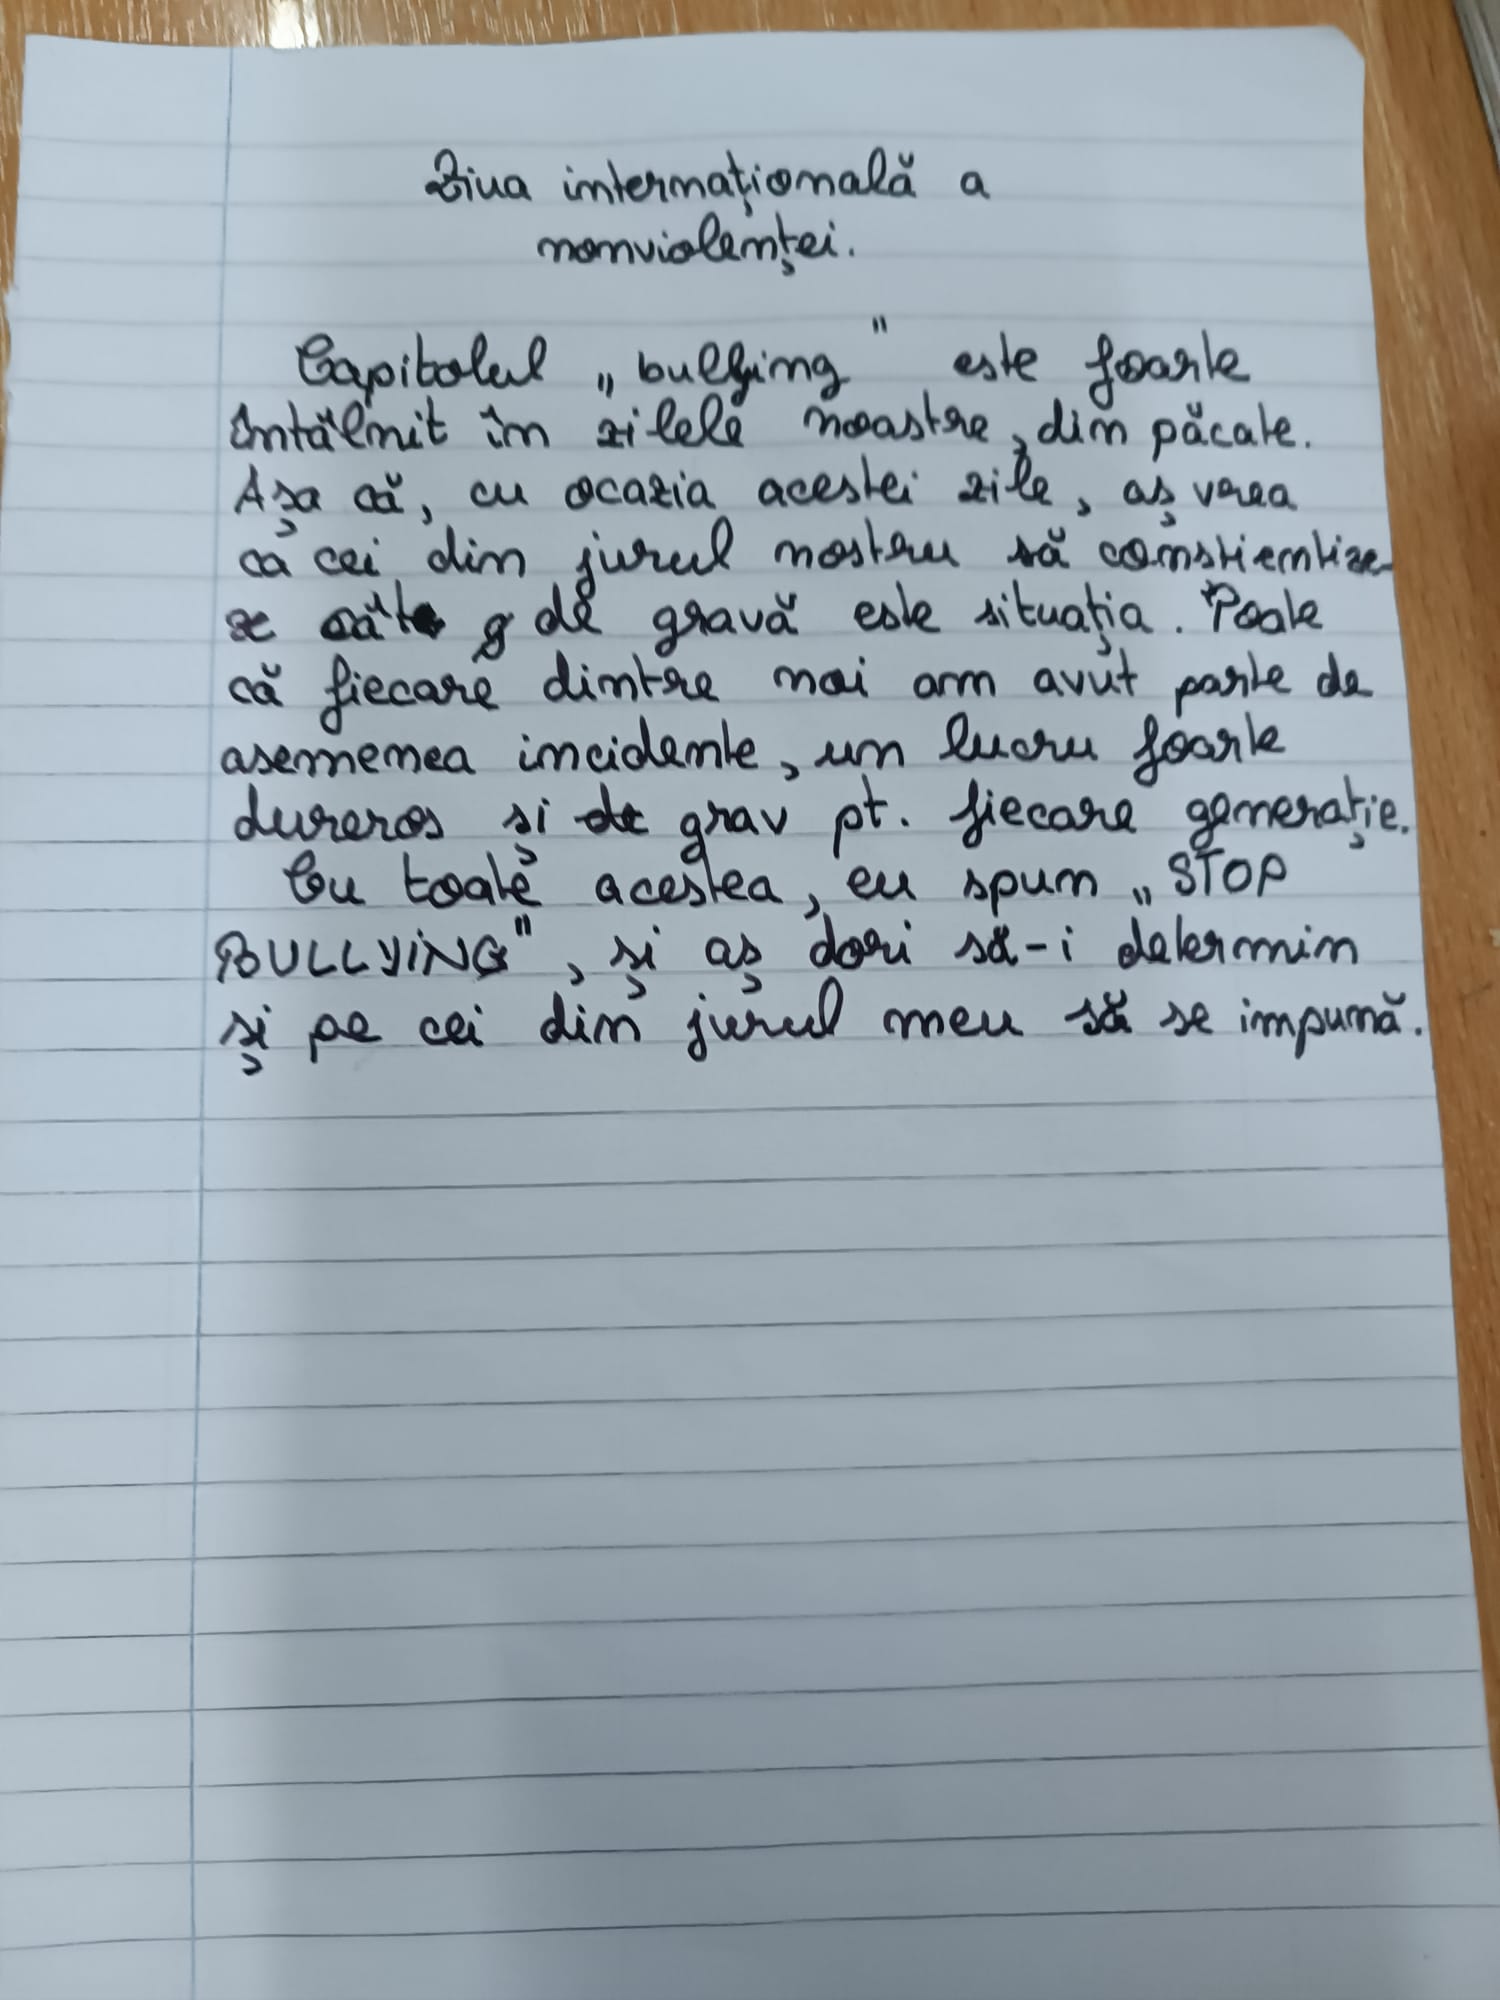 Ziua internațională a
nonviolenței.
Capitolul „bullying" este foarte
întâlnit în zilele noastre, din păcate.
Așa că, cu ocazia acestei zile, aș vrea
ca cei din jurul nostru să constientize-
ze cât de gravă este situația. Poate
că fiecare dintre noi am avut parte de
asemenea incidente, un lucru foarte
dureros și de grav pt. fiecare generație.
Cu toate acestea, eu spun „STOP
BULLYING", și aș dori să-i determin
și pe cei din jurul meu să se impună.